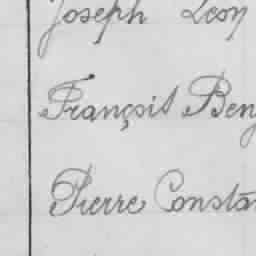 Joseph Leon
François Ben
Pierre Consta